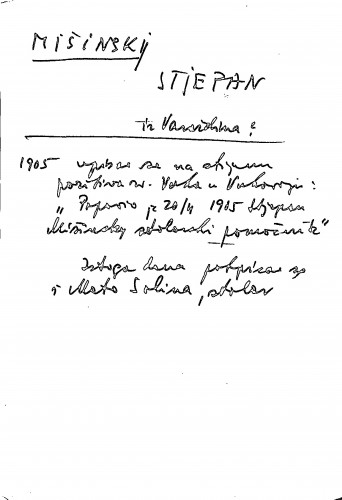 MIŠINSKÝ
STJEPAN
iz Varaždina?
1905 upisao se na
sv. Vorha u Vukovoju:
„Popravio je 20/4 1905 Stjepan
Mišinsky stolarski pomoćnik“
Istoga dana potpisao se
i Mato Solina, stolar